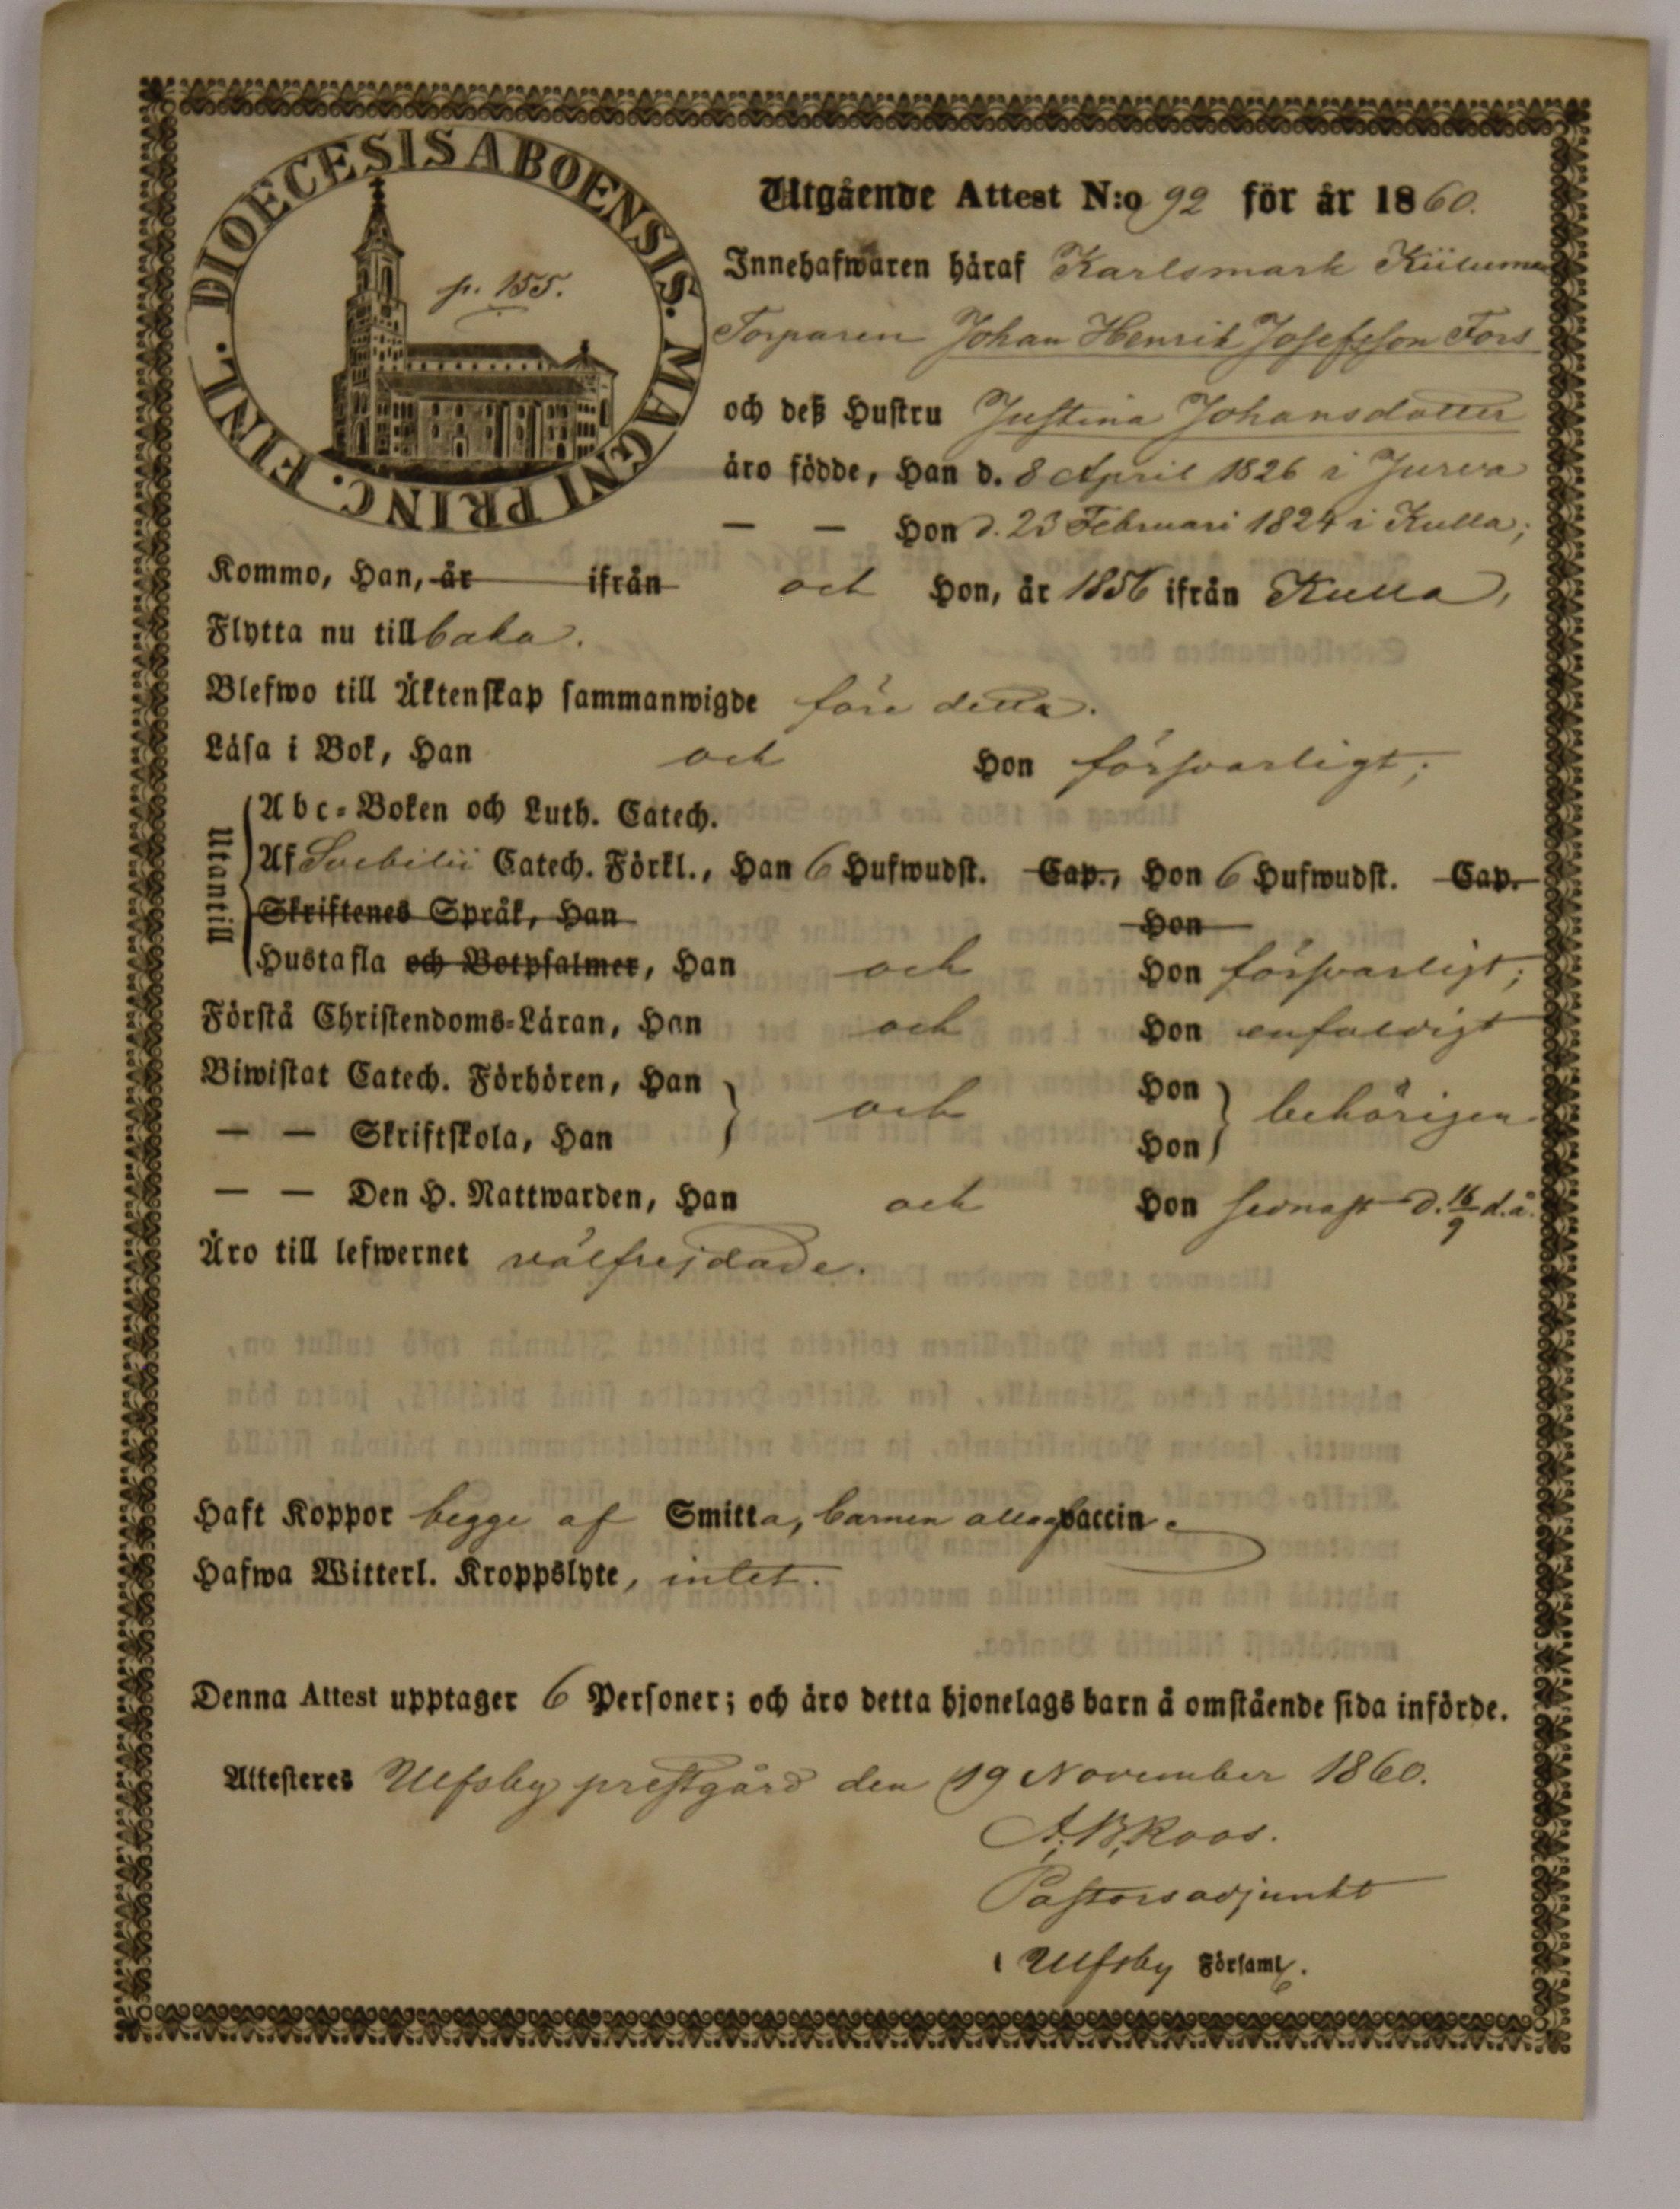 DIOECESIS ABOENSIS. MAGNI PRINC. FINL.
p. 155.
Utgående Attest N:o 92 för år 1860.
Innehafwaren häraf Karlsmark
Torparen Johan Henrik Josefsson Fors
och deß Hustru Justina Johansdotter
äro födde, Han d. 8 April 1826 i Jurva
— — Hon d. 23 Februari 1824 i Kulla;
Kommo, Han, år ifrån och Hon, år 1856 ifrån Kulla,
Flytta nu tillbaka.
Blefwo till Äktenskap sammanwigde före detta.
Läsa i Bok, Han och Hon försvarligt;
Utantill
Abc-Boken och Luth. Catech.
Af Svebilii Catech. Förkl., Han 6 Hufwudst. Cap., Hon 6 Hufwudst. Cap.
Skriftenes Språk, Han Hon
Hustafla och Botpsalmer, Han och Hon försvarligt;
Förstå Christendoms-Läran, Han och Hon enfaldigt
Biwistat Catech. Förhören, Han och Hon behörigen
— — Skriftskola, Han Hon
— — Den H. Nattwarden, Han och Hon sednast d. 16/9 d.å.
Äro till lefwernet välfrejdade.
Haft Koppor begge af Smitta, barnen alla vaccin.
Hafwa Witterl. Kroppslyte, intet.
Denna Attest upptager 6 Personer; och äro detta hjonelags barn å omstående sida införde.
Attesteres Ulfsby prestgård den 19 November 1860.
A. B. Roos.
Pastorsadjunkt
i Ulfsby Församl.